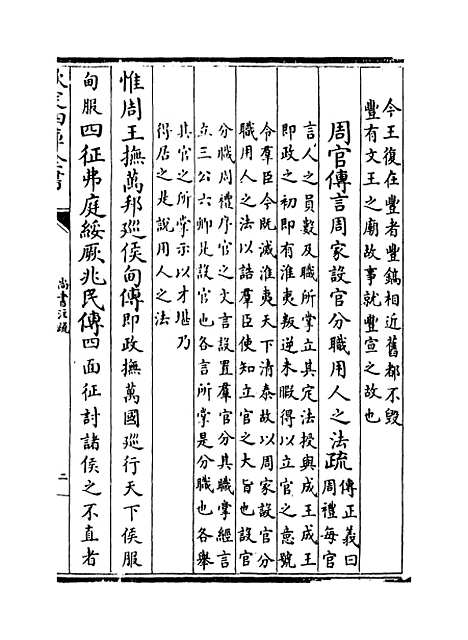 今王復在豐者豐鎬相近舊都不毀
豐有文王之廟故事就豐宣之故也
周官傳言周家設官分職用人之法疏傳正義曰周禮每官
言人之員數及職所掌立其定法授與成王成王
即政之初即有淮夷叛逆未暇得以立官之意號
令羣臣今既滅淮夷天下清泰故以周家設官分
職用人之法以誥羣臣使知立官之大旨也設官
分職周禮序官之文言設置羣官分其職掌經言
立三公六卿是設官也各言所掌是分職也各舉
其官之所掌示以才堪乃
得居之是說用人之法
惟周王撫萬邦廵侯甸傳即政撫萬國廵行天下侯服
甸服四征弗庭綏厥兆民傳四面征討諸侯之不直者
欽定四庫全書
尚書注疏
二